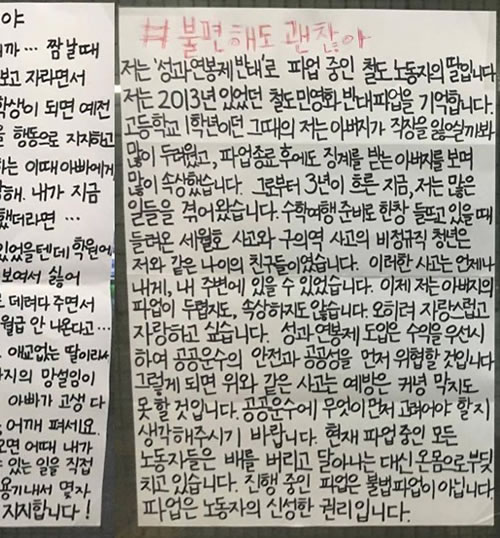 야
까… 짬날때
보고 자라면서
학생이 되면 예전
을 행동으로 지지하고
하는 이때 아빠에게
해. 내가 지금
했더라면 …
있었을텐데 학원에
보여서 싫어
데려다 주면서
월급 안 나온다고…
. 애교없는 딸이라서
지의 망설임이
아빠가 고생 다
, 어깨 펴세요.
오면 어때 내가
있는 일을 직접
용기내서 몇자
지지합니다!
#불편해도 괜찮아
저는 '성과연봉제 반대'로 파업 중인 철도 노동자의 딸입니다.
저는 2013년 있었던 철도민영화 반대파업을 기억합니다.
고등학교 1학년이던 그때의 저는 아버지가 직장을 잃으실까봐
많이 두려웠고, 파업종료 후에도 징계를 받는 아버지를 보며
많이 속상했습니다. 그로부터 3년이 흐른 지금, 저는 많은
일들을 겪어왔습니다. 수학여행 준비로 한창 들뜨고 있을 때
들려온 세월호 사고와 구의역 사고의 비정규직 청년은
저와 같은 나이의 친구들이었습니다. 이러한 사고는 언제나
내게, 내 주변에 있을 수 있었습니다. 이제 저는 아버지의
파업이 두렵지도, 속상하지도 않습니다. 오히려 자랑스럽고
자랑하고 싶습니다. 성과연봉제 도입은 수익을 우선시
하여 공공운수의 안전과 공공성을 먼저 위협할 것입니다
그렇게 되면 위와 같은 사고는 예방은 커녕 막지도
못할 것입니다. 공공운수에 무엇이 먼저 고려되어야 할 지
생각해주시기 바랍니다. 현재 파업 중인 모든
노동자들은 배를 버리고 달아나는 대신 온몸으로 부딪
치고 있습니다. 진행 중인 파업은 불법파업이 아닙니다.
파업은 노동자의 신성한 권리입니다.